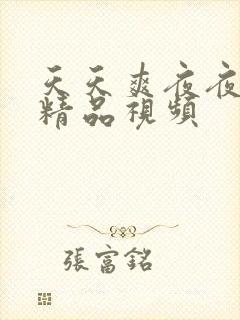 天天爽夜夜
精品視頻
張富銘